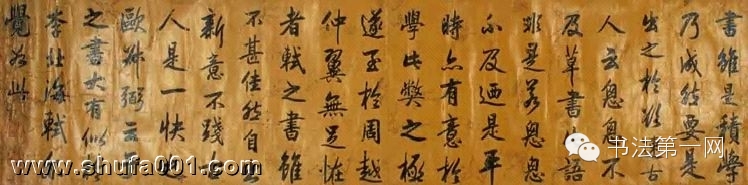 書雖是積學
乃成然要是
出之於欲古
人云怱怱不
及草書此語
非是若怱怱
不及迺是平
時亦有意於
學此弊之極
遂至於周越
仲翼無足怪
者軾之書雖
不甚佳然自出
新意不踐古
人是一快也
歐叔弼云
之書大有似於
李北海軾亦
覺如此
www.shufa001.com
书法第一网